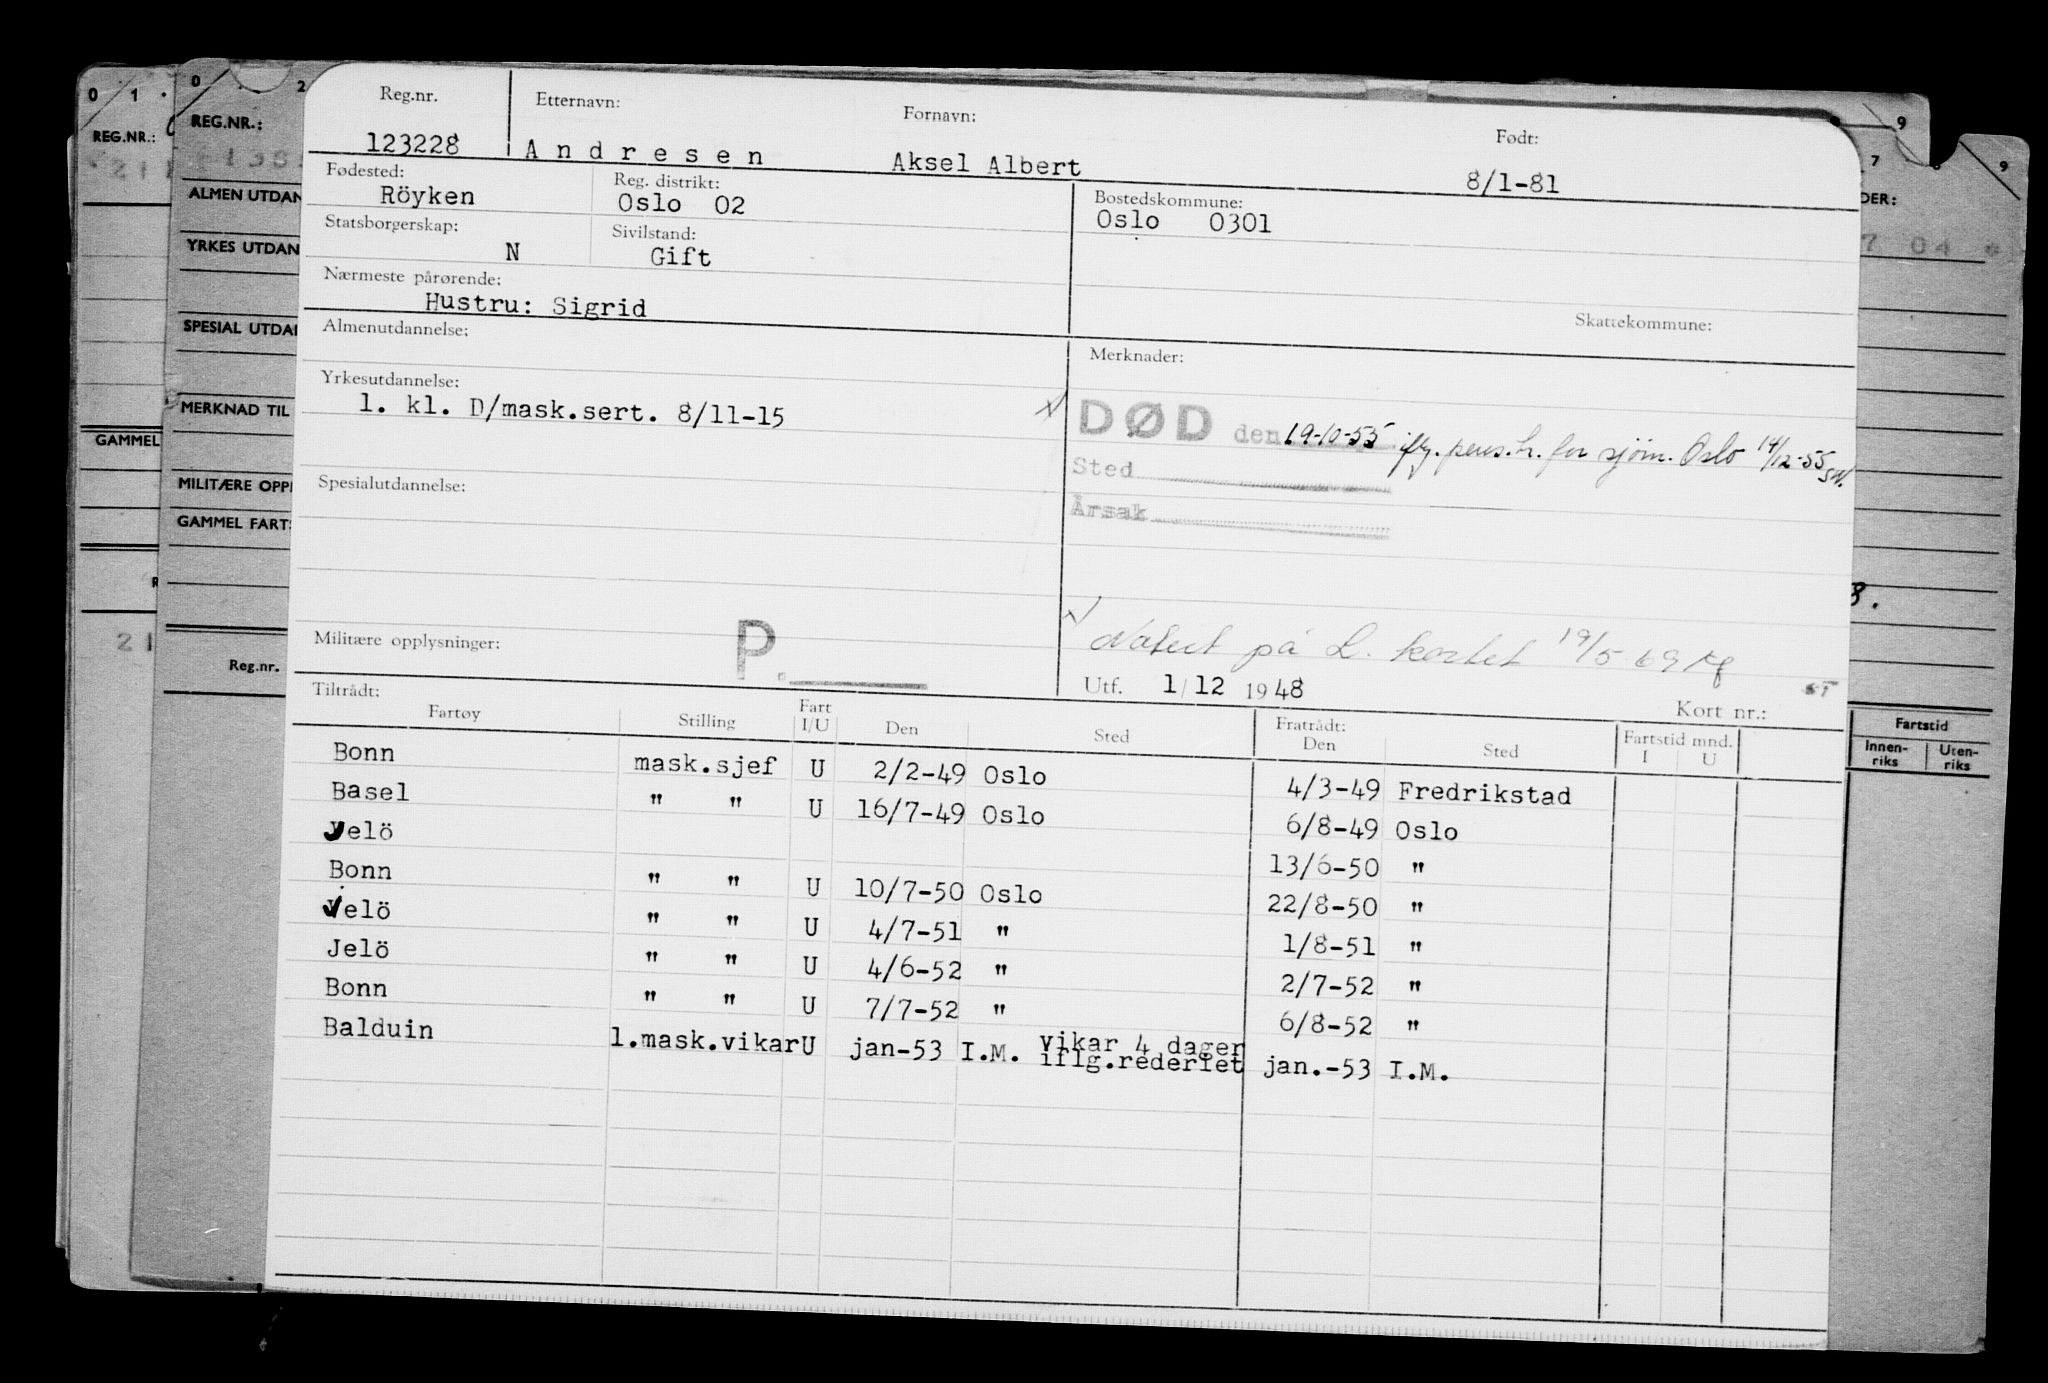 0 1 .
0 2
9
7 8 9
REG.NR.:
REG.NR.:
ALMEN UTDAN
YRKES UTDAN
SPESIAL UTDAN
MERKNAD TIL
GAMMEL
MILITÆRE OPPL
GAMMEL FARTS
Reg.nr.
21
DER:
7 04 *
8.
Fartstid
Innen-riks Uten-riks
Reg.nr. Etternavn: Fornavn: Født:
123228 Andresen Aksel Albert 8/1-81
Fødested: Reg. distrikt: Bostedskommune:
Röyken Oslo 02 Oslo 0301
Statsborgerskap: Sivilstand:
N Gift
Nærmeste pårørende:
Hustru: Sigrid
Skattekommune:
Almenutdannelse: Merknader:
Yrkesutdannelse:
1. kl. D/mask.sert. 8/11-15
DØD den 19-10-55 iflg. pens.tr. for sjøm. Oslo 14/12-55
Sted
Årsak
Spesialutdannelse:
Militære opplysninger: P.
Notert på L. kortet 19/5-69
Utf. 1/12 1948
Kort nr.:
Tiltrådt: Fratrådt:
Fartøy Stilling Fart I/U Den Sted Den Sted Fartstid mnd. I U
Bonn mask.sjef U 2/2-49 Oslo 4/3-49 Fredrikstad
Basel " " U 16/7-49 Oslo 6/8-49 Oslo
Jelö 13/6-50 "
Bonn " " U 10/7-50 Oslo 22/8-50 "
Jelö " " U 4/7-51 " 1/8-51 "
Jelö " " U 4/6-52 " 2/7-52 "
Bonn " " U 7/7-52 " 6/8-52 "
Balduin 1.mask.vikar U jan-53 I.M. vikar 4 dager iflg.rederiet jan.-53 I.M.